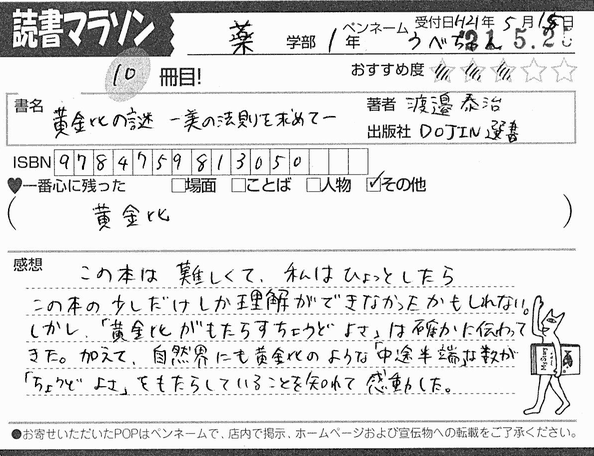 読書マラソン
薬 学部 1年 ペンネーム うべちゃん 受付日 '21年 5月 15日
21.5.2
10 冊目! おすすめ度 ★★★☆☆
書名 黄金比の謎 ー美の法則を求めてー
著者 渡邉 泰治
出版社 DOJIN選書
ISBN 9784759813050
♥一番心に残った □場面 □ことば □人物 ☑その他
( 黄金比 )
感想
この本は 難しくて、私はひょっとしたら
この本の少しだけしか理解ができなかったかもしれない。
しかし、「黄金比がもたらすちょうど よさ」は確かに伝わって
きた。加えて、自然界にも黄金比のような「中途半端」な数が
「ちょうど よさ」をもたらしていることを知れて 感動した。
●お寄せいただいたPOPはペンネームで、店内で掲示、ホームページおよび宣伝物への転載をご了承ください。